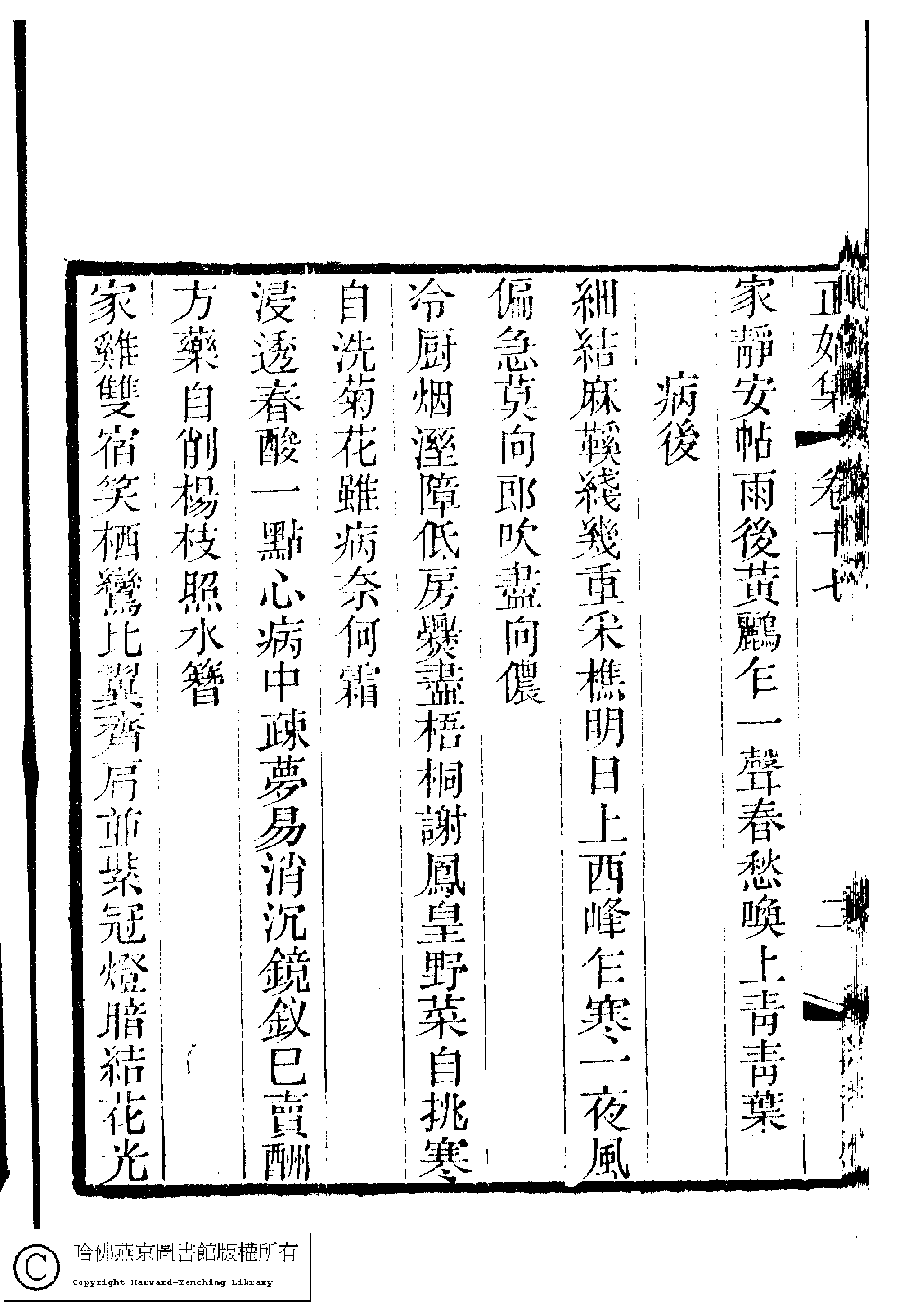 正始集 卷十七 二
家靜安帖雨後黃鸝乍一聲春愁喚上青青葉
病後
細結麻鞵綫幾重采樵明日上西峰乍寒一夜風
偏急莫向郎吹盡向儂
冷厨烟溼障低房爨盡梧桐謝鳳皇野菜自挑寒
自洗菊花雖病奈何霜
浸透春酸一點心病中疎夢易消沉鏡釵已賣酬
方藥自削楊枝照水簪
家雞雙宿笑栖鸞比翼齊眉並紫冠燈暗結花光
哈佛燕京圖書館版權所有
Copyright Harvard-Yenching Library